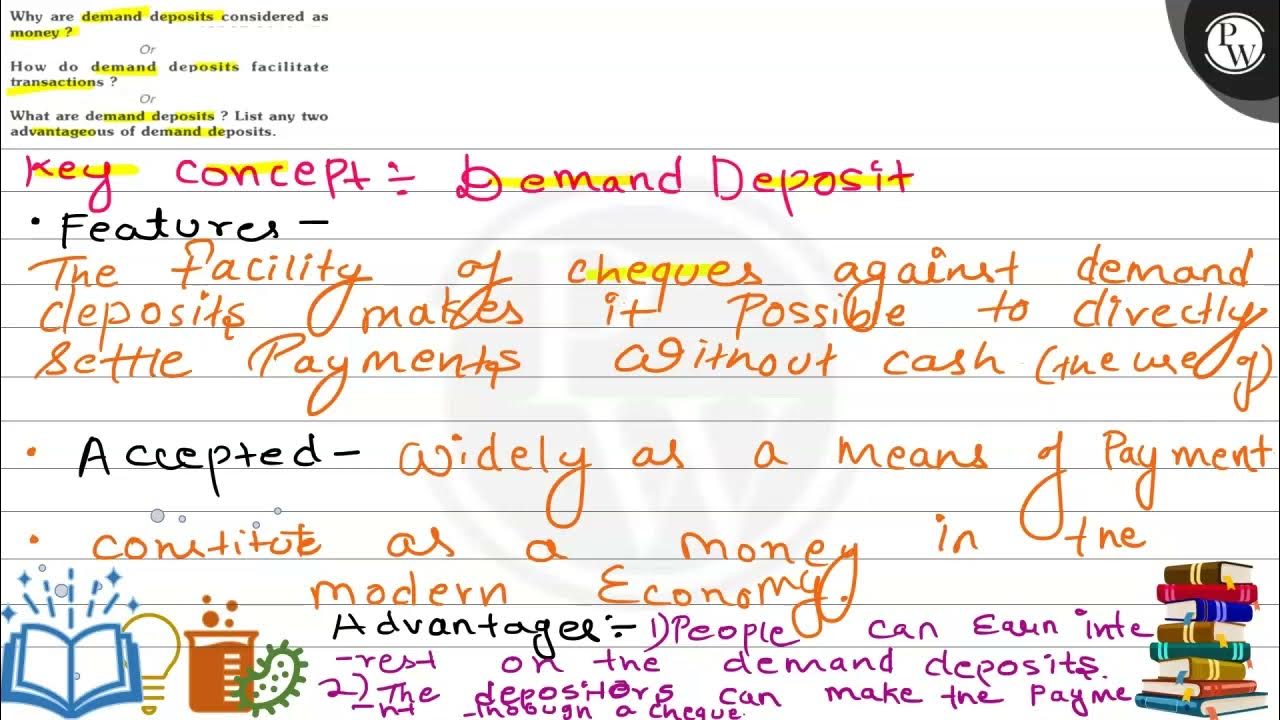 Why are demand deposits considered as
money ?
Or
How do demand deposits facilitate
transactions ?
Or
What are demand deposits ? List any two
advantageous of demand deposits.
PW
Key concept :- Demand Deposit
• Features -
The facility of cheques against demand
deposits makes it possible to directly
settle Payments without cash (the use of)
• Accepted - widely as a means of Payment
• constitute as a money in the
modern Economy.
Advantages :- 1) People can Earn inte
-rest on the demand deposits.
2) The depositors can make the Payme
-nt through a cheque.